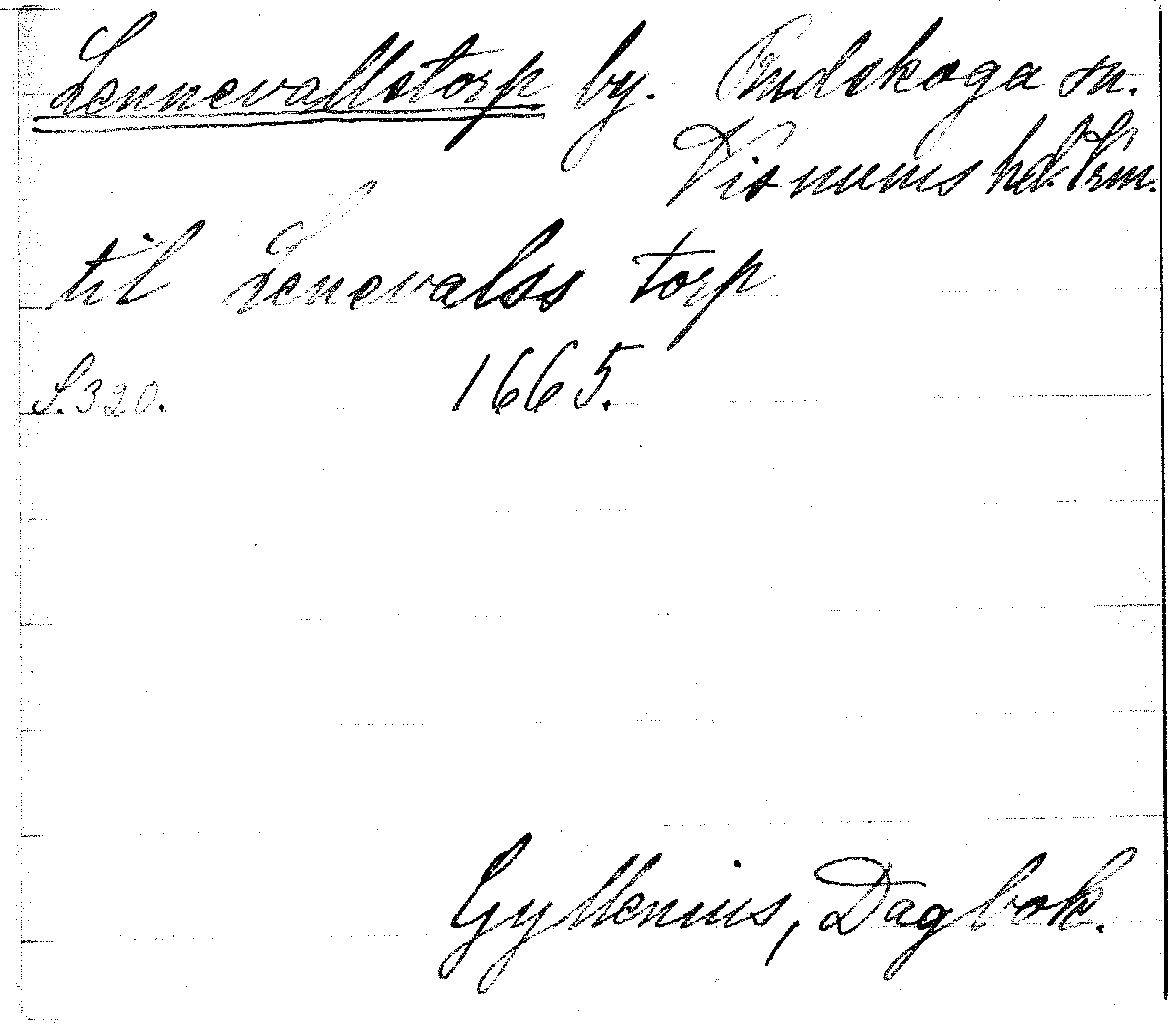 Lennevallstorp by. Rudskoga sn.
Visnums hd. Vrm.
til Lenevalss torp
S. 320. 1665.
Gyllenius, Dagbok.